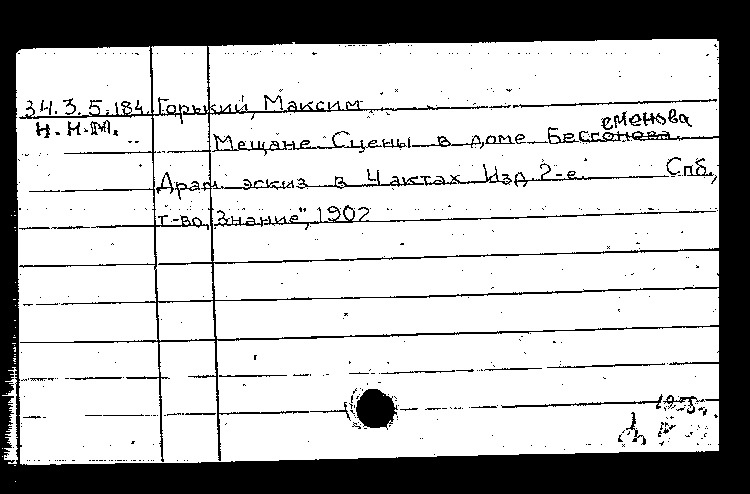 34.3.5.184. Горький, Максим
Н.Н.М.
еменова
Мещане. Сцены в доме Бессонова.
Драм. эскиз в 4 актах. Изд. 2-е. Спб.,
т-во „Знание", 1902